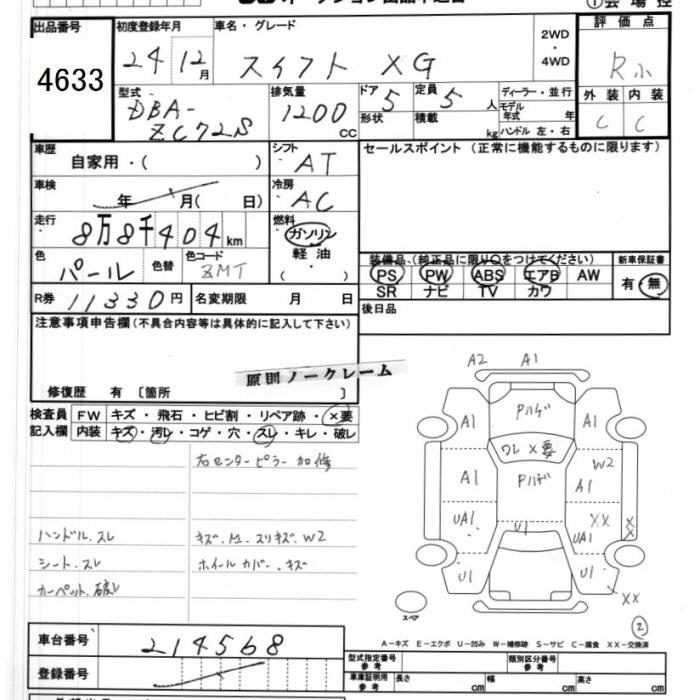 ① 会 場 控
出品番号
4633
初度登録年月
24 12月
車名・グレード
スイフト XG
2WD
・
4WD
評価点
R小
外装 内装
C C
型式
DBA-
ZC72S
排気量
1200cc
ドア 5
形状
定員 5人
積載 kg
ディーラー・並行
モデル年式 年
ハンドル 左・右
車歴
自家用・( )
シフト
AT
セールスポイント(正常に機能するものに限ります)
車検
年 月( 日)
冷房
AC
走行
8万8千404km
燃料
ガソリン
軽油
・( )
色
パール
色替
色コード
ZMT
装備品(純正品に限り○をつけてください)
PS PW ABS エアB AW
SR ナビ TV カワ
新車保証書
有・無
R券 11330円
名変期限 月 日
後日品
注意事項申告欄(不具合内容等は具体的に記入して下さい)
原則ノークレーム
修復歴 有〔箇所 〕
検査員記入欄
FW キズ・飛石・ヒビ割・リペア跡・×要
内装 キズ・汚レ・コゲ・穴・スレ・キレ・破レ
右センターピラー加修
ハンドル.スレ
キズ.M.スリキズ.W2
シート.スレ
ホイールカバー.キズ
カーペット.破レ
A2 A1
Pハゲ
A1 A1
ワレ×要
W2
A1 Pハゲ A1
UA1 U1 XX XX
UA1
U1 U1
XX
スペア
②
A-キズ E-エクボ U-凹み W-補修跡 S-サビ C-腐食 XX-交換済
車台番号
214568
登録番号
型式指定番号 参考
類別区分番号 参考
車庫証明用 参考
長さ cm
幅 cm
高さ cm